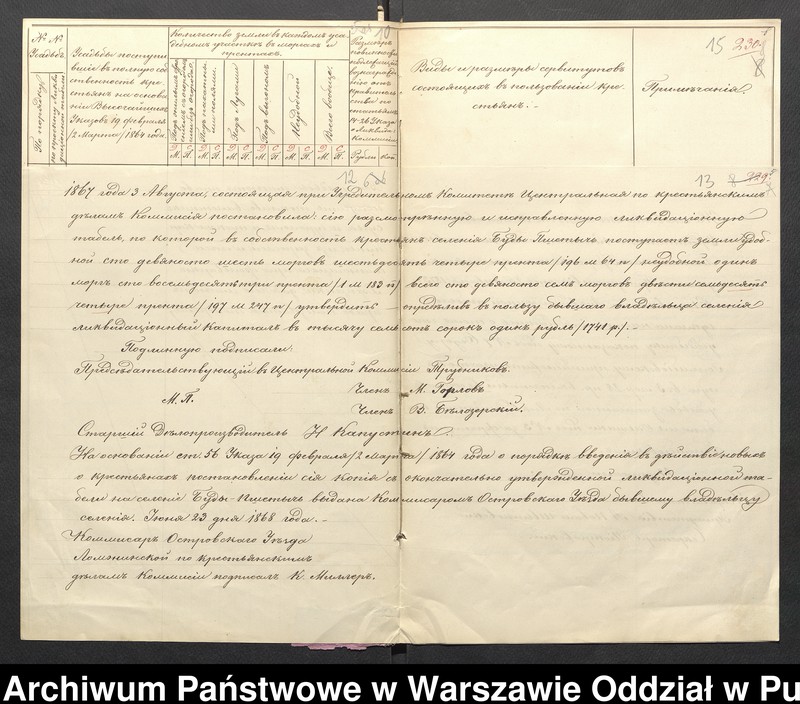 № №
Усадьбъ.
По порядку
по проекту ликви-
даціонной табели
Усадьбы поступи
вшіе въ полную со
ственность кре-
стьянъ на основа-
ніи Высочайшихъ
Указовъ 19 февраля
/2 Марта/ 1864 года.
Количество земли въ каждомъ уса
дебномъ участкѣ въ моргахъ и
прентахъ.
Подъ пахатны-
ми полями.
Подъ лугами
Подъ выгономъ
Неудобной
Всего вообще.
М. П. М. П. М. П. М. П. М. П. М. П.
Размѣръ
14-26 Указа
о Ликвида.
коммисіи
Рубли коп
10
Виды и размѣры сервитутовъ
состоящихъ въ пользованіи кре-
стьянъ.-
15 230
8
Примѣчанія.
12
13 8 229
1867 года 3 Августа, состоящая при Учредительномъ Комитетѣ Центральная по крестьянскимъ
дѣламъ Коммисія постановила: сію размотрѣнную и исправленную ликвидаціонную
табель, по которой въ собственность крестьянъ селенія Буды Пшетыч. поступаетъ земли удоб-
ной сто девяносто шесть морговъ шестьдесятъ четыре прента /196 м 64 п/ неудобной одинъ
моргъ сто восемьдесятъ три прента /1 м 183 п/ всего сто девяносто семь морговъ двѣсти семьдесятъ
четыре прента /197 м 247 п/ утвердить — опредѣливъ въ пользу бывшаго владѣльца селенія
ликвидаціонный капиталъ въ тысячу семьсотъ сорокъ одинъ рубль /1741 р./.-
Подлинную подписали:
Предсѣдательствующій въ Центральной Коммисіи Трубниковъ.
Членъ М. Горловъ
М. П.
Членъ В. Бѣлозерскій.
Старшій Дѣлопроизводитель Н Капустинъ.
На основаніи ст. 56 Указа 19 февраля /2 Марта/ 1864 года о порядкѣ введенія въ дѣйствіе новыхъ
о крестьянахъ постановленіи сія копія съ окончательно утвержденной ликвидаціонной та-
бели на селеніе Буды-Пшетычъ выдана Коммисаромъ Островскаго Уѣзда бывшему владѣльцу
селенія. Іюня 23 дня 1868 года.-
Коммисаръ Островскаго Уѣзда
Ломжинской по крестьянскимъ
дѣламъ Коммисіи подписалъ К. Миллеръ.
Archiwum Państwowe w Warszawie Oddział w Pu